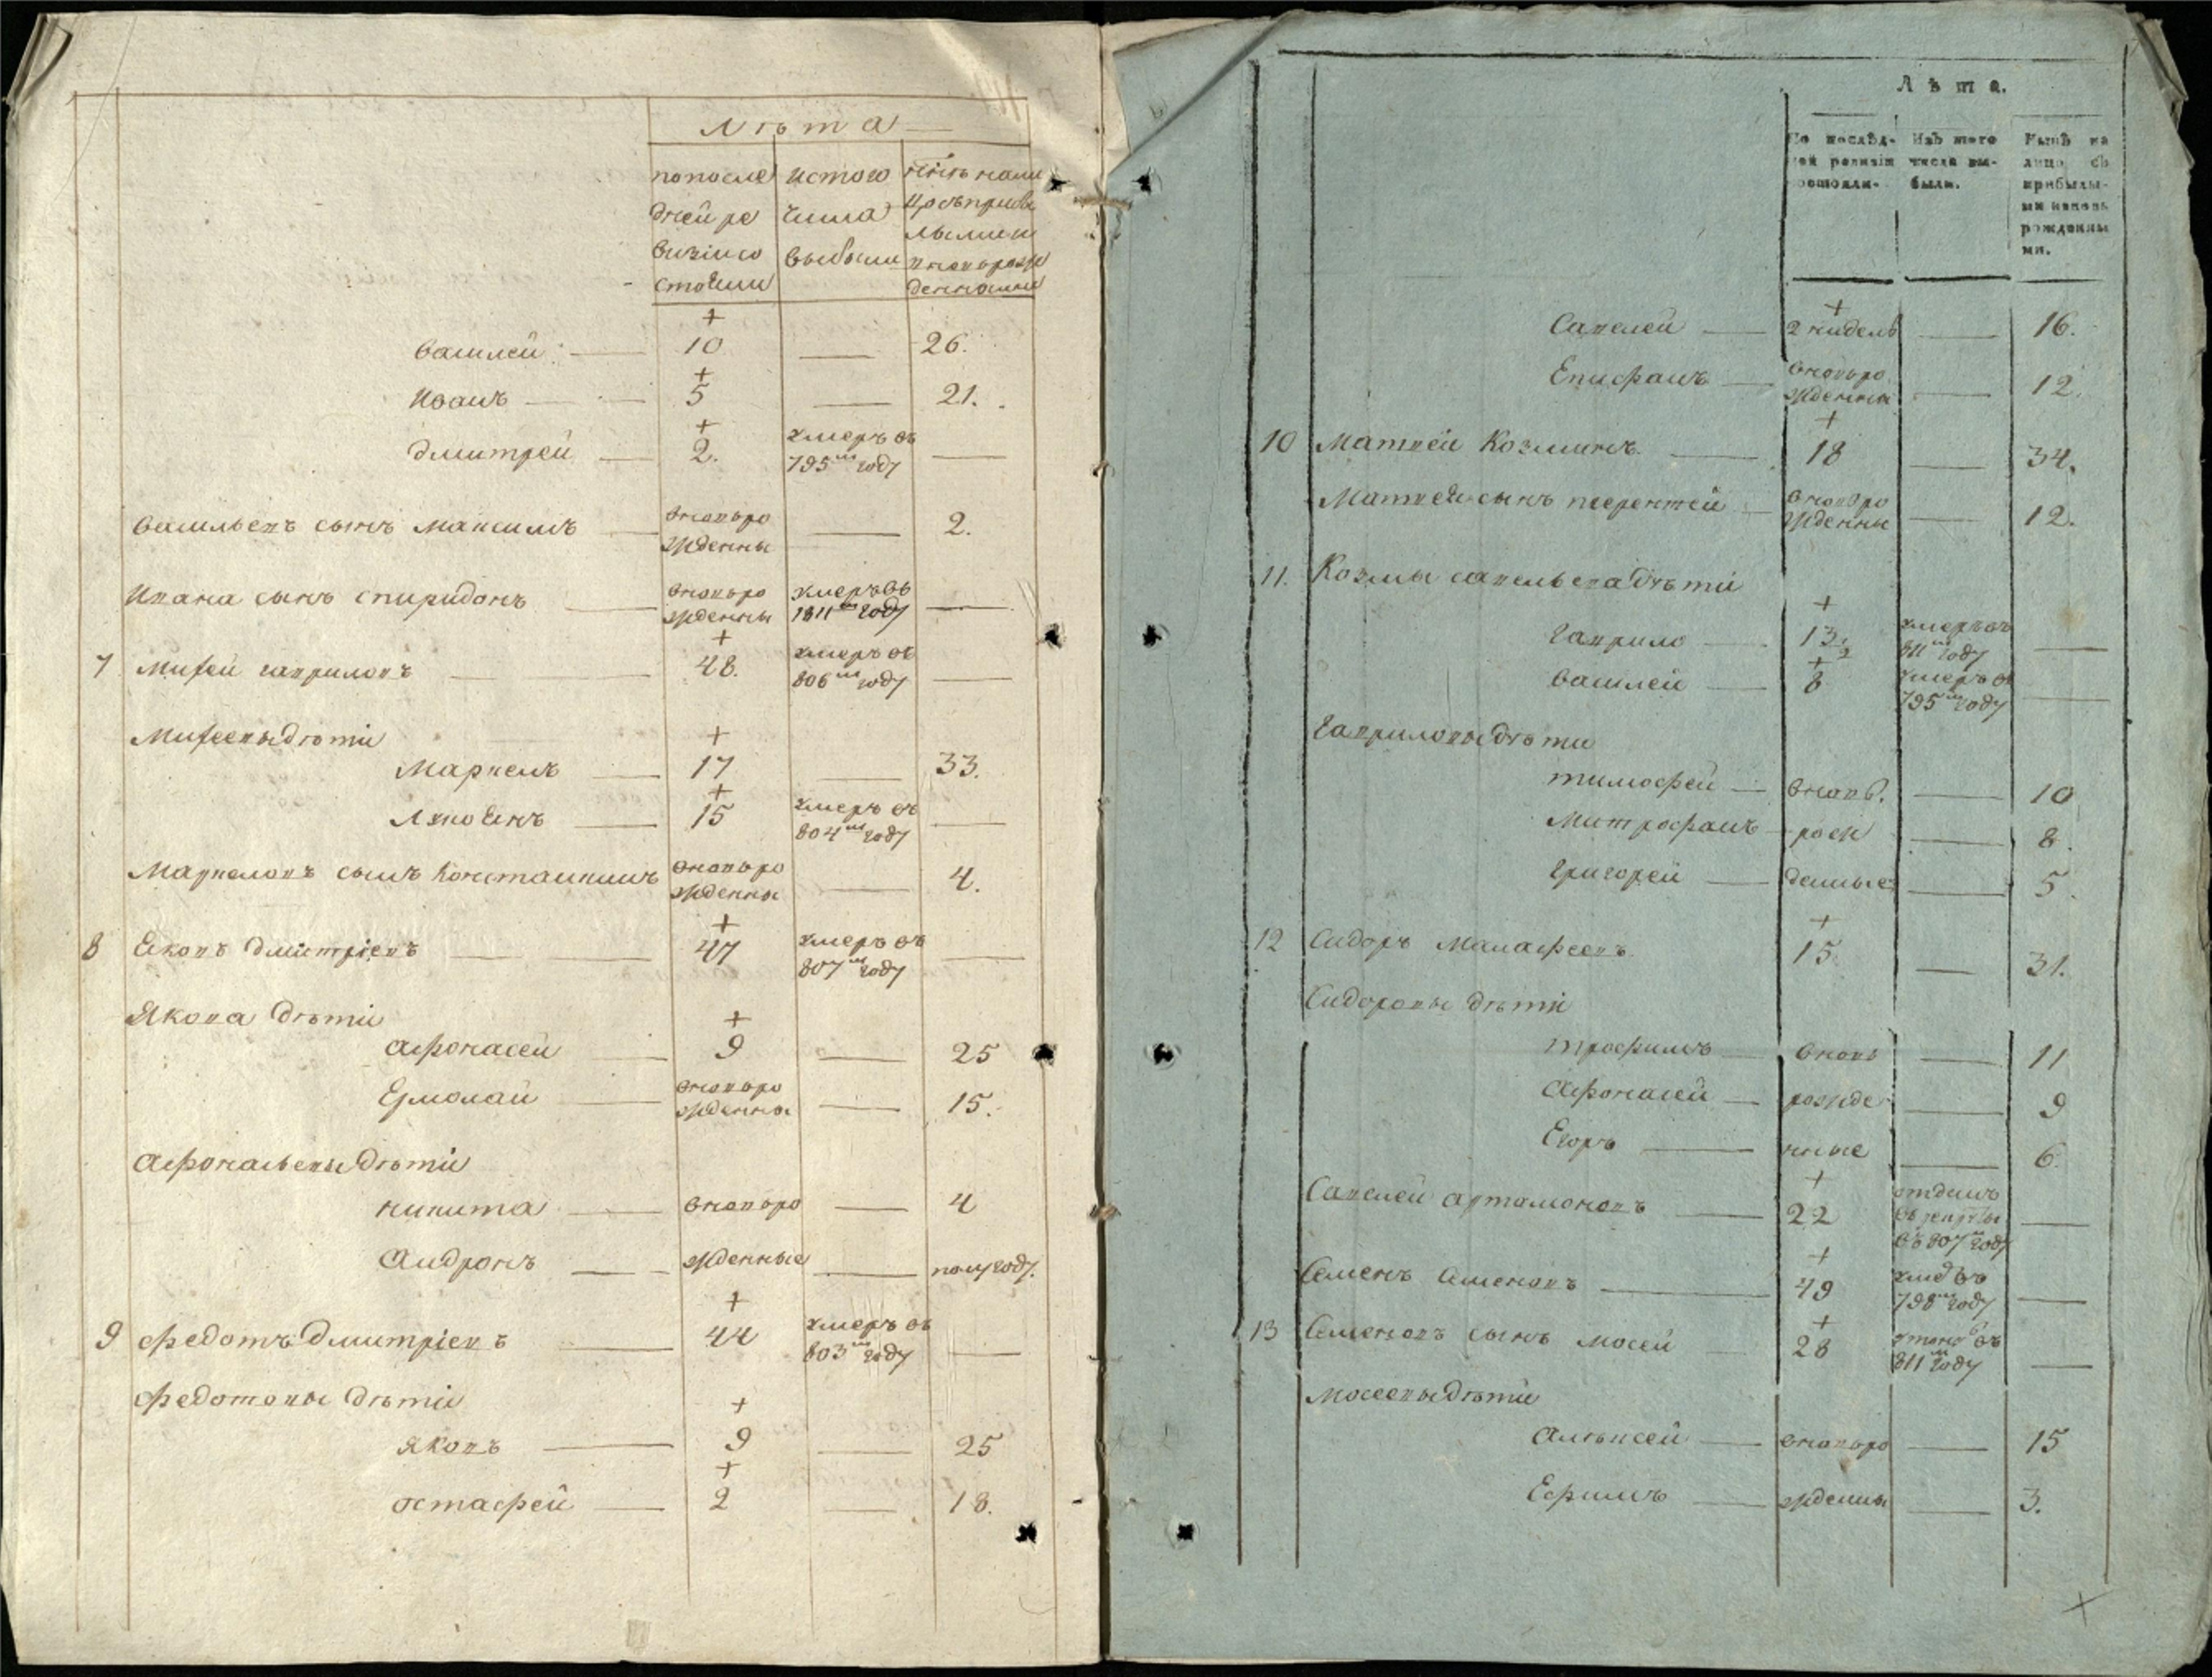 Лѣта
попосле истого нынѣ нали
дней ре числа цо съприбы
визіи со выбыли лыми и
стояли вновьрож
денными
+
Василей 10 26.
+
Иванъ 5 21.
+
Дмитрей 2. умеръ въ
795м году
Васильевъ сынъ Максимъ вновьро
жденны 2.
Ивана сынъ Спиридонъ вновьро умеръ въ
жденны 1811м году
+
7 Мифей Гавриловъ 48. умеръ въ
806м году
Мифеевы дѣти +
Маркелъ 17 33.
+
Лукоянъ 15 умеръ въ
804м году
Маркеловъ сынъ Констанкинъ вновьро
жденны 4.
+
8 Яковъ Дмитріевъ 47 умеръ въ
807м году
Якова дѣти +
Афонасей 9 25
Ермолай вновьро
жденны 15.
Афонасьевы дѣти
Никита вновьро 4
Андронъ жденные полугоду.
+
9 Федотъ Дмитріевъ 44 умеръ въ
803м году
Федотовы дѣти +
Яковъ 9 25
+
Остафей 2 18.
Лѣта.
По послѣд- Изъ того Нынѣ на
ней ревизіи числа вы- лицо съ
состояли. были. прибылы-
ми и вновь
рожденны
ми.
+
Савелей 2 нидель 16.
Епифанъ вновьро
жденны 12.
+
10 Матвей Козминъ 18 34.
Матвея сынъ Терентей вновьро
жденны 12.
11. Козмы Савельева дѣти
+
Гаврило 13 умеръ въ
811м году
+
Василей 8 умеръ въ
795м году
Гавриловы дѣти
Тимофей вновь. 10
Митрофанъ рож 8.
Григорей денные 5.
+
12 Сидоръ Малафеевъ 15 31.
Сидоровы дѣти
Трофимъ вновь 11
Афонасей рожде 9
Егоръ нные 6.
+
Савелей Артамоновъ 22 отданъ
въ рекруты
въ 807м году
+
Семенъ Семеновъ 49 умеръ
798м году
+
13 Семеновъ сынъ Мосей 28 въ
811м году
Мосеевы дѣти
Алѣксей вновьро 15
Ефимъ жденны 3.